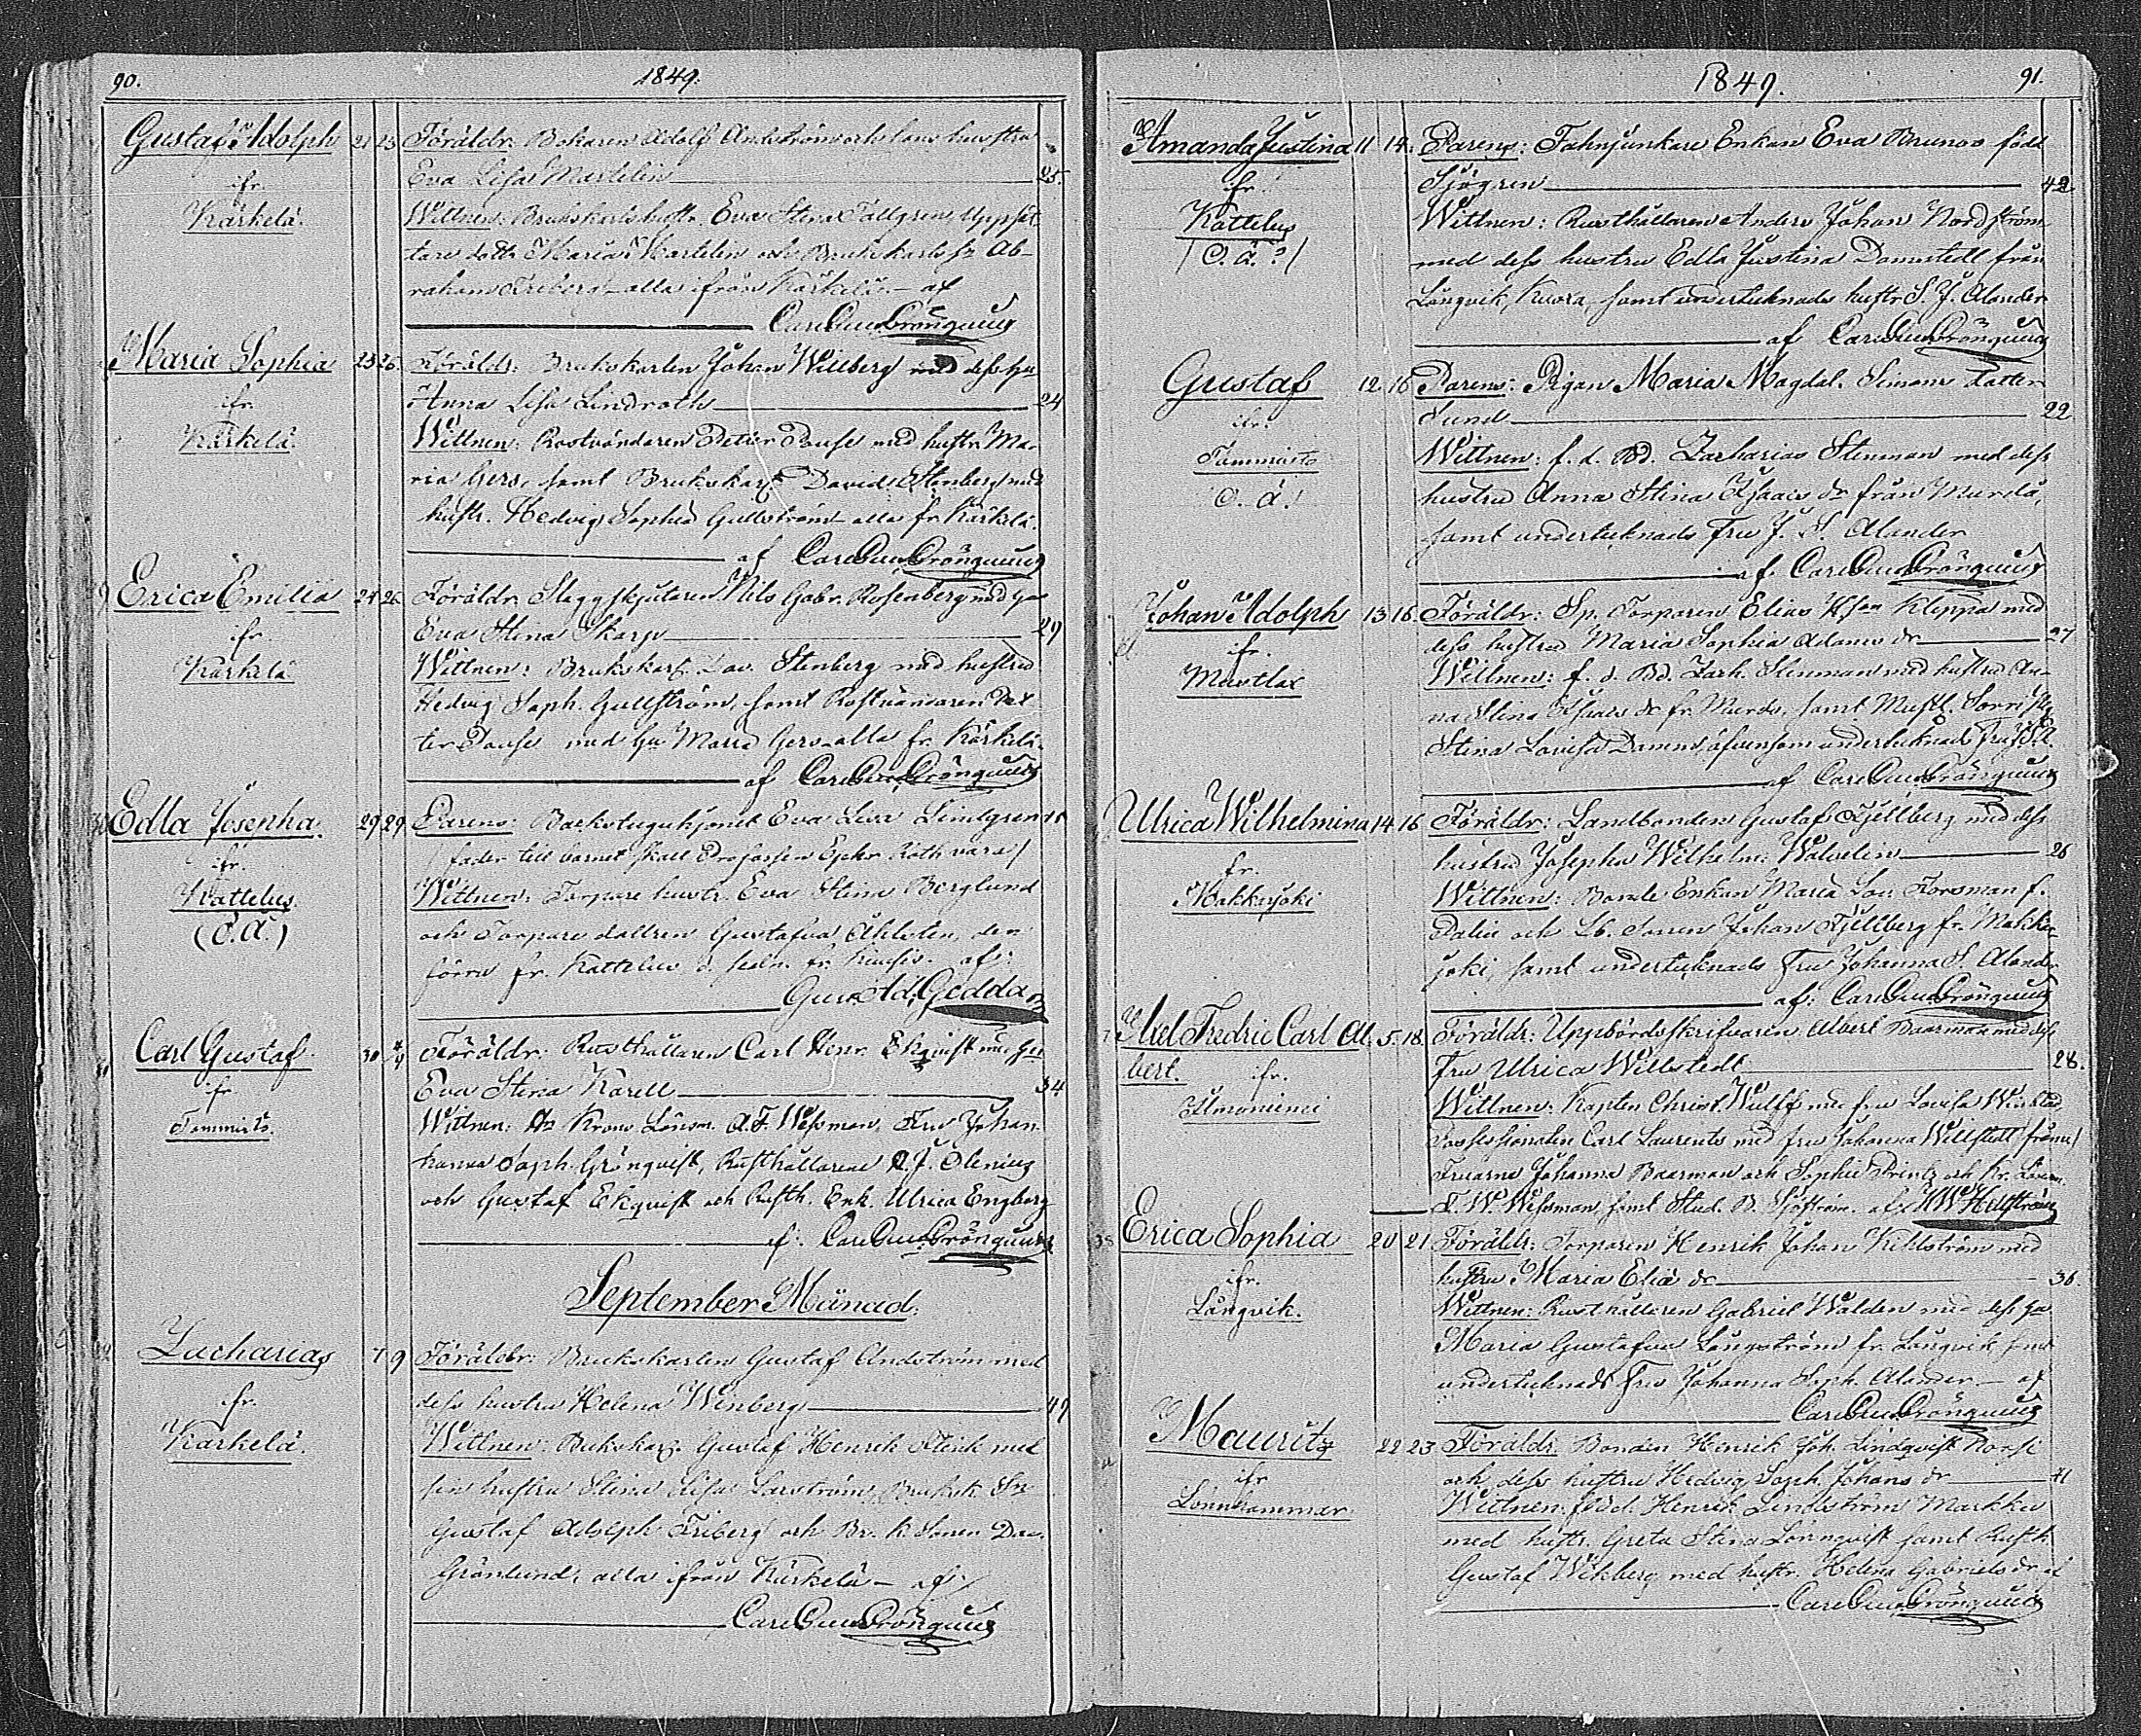 90.
1849.
Gustaf Adolph 21 23 Föräldr: Bokaren Adolf Andström och hans hustru
ifr. Eva Lisa Martelin 25.
Kärkelä. Wittnen: Brukskarls hustr. Eva Stina Tallgren, Uppsät-
tare dottr Maria Martelin och Brukskarls sn Ab-
raham Friberg alla ifrån Kärkelä af
Carl Gus Grönquist
Maria Sophia 23 26. Föräldr: Brukskarlen Johan Willberg med dess hu
ifr. Anna Lisa Lindroth 24
Kärkelä Wittnen: Rostvändaren Petter Pause med hustr Ma-
ria Gers, samt Brukskarl David Stenberg med
hustr. Hedvig Sophia Gullström alla fr Kärkelä.
af Carl Gus Grönquist
Erica Emilia 24 26 Föräldr. Slaggskjutaren Nils Gabr. Rosenberg med hu
ifr. Eva Stina Skarp 29
Kärkelä Wittnen: Brukskarl. Dav. Stenberg med hustru
Hedvig Soph. Gullström, samt Rostvändaren Pet
ter Pause med hu Maria Gers alla fr Kärkelä.
af Carl Gus Grönquist
Edla Josepha. 29 29 Parens: Backstuguhjonet Eva Lisa Lindgren
ifr. fader till barnet skall Ephr. Roth vara/
Kattelus. Wittnen: Torpare hustr. Eva Stina Berglund
(O.Ä.) och Torpare dottren Gustafva Åhlsten, den
förra fr. Kattelus d. sedn. fr. af:
Gust. Ad. Gedda
Carl Gustaf. 30 4/9 Föräldr: Rusthållaren Carl Henr. Ekqvist med hu
ifr Eva Stina Karell 34
Tammisto. Wittnen: Krono Länsm. A. F. Wessman, Fru Johan
hanna Soph. Grönqvist, Rusthållarene A. J. Olenius
och Gustaf Ekqvist och Rusth. Enk. Ulrica Engberg
af: Carl Gus Grönquist
September Månad.
Zacharias 7 9 Föräldr: Brukskarlen Gustaf Andström med
fr. dess hustru Helena Winberg 49
Kärkelä. Wittnen: Brukskarl. Gustaf Henrik Stenk med
sin hustru Stina Lisa Bruksk. Sn
Gustaf Adolph Friberg och Br. k Sonen Dav.
Grönlund, alla ifrån Kärkelä — af
Carl Gus Grönquist
1849.
91.
Amanda Justina 11 14. Parens: Fahnjunkare Enkan Eva Brunov född
ifr Sjögren 42
Kattelus Wittnen: Rusthållaren Anders Johan Nordström
(O.Ä.?) med dess hustru Edla Justina Damstedt från
Långvik, Kuora, samt undertecknads hustr S. J. Alander
af Carl Gus Grönquist
Gustaf 12. 16 Parens: Pigan Maria Magdal. Simons dotter
ifr. Sund 22
Tammisto Wittnen: f. d. Bd. Zacharias Stenman med dess
O.Ä. hustru Anna Stina Isaacs dr från Murdä,
samt undertecknads Fru J. S. Alander
af. Carl Gus Grönquist
Johan Adolph 13 16. Föräldr: Sp. Torparen Elias Kleppa med
ifr. dess hustru Maria Sophia Adams dr 27
Mustlax Wittnen: f. d. Bd. Zach. Stenman med hustru An-
na Stina Isaacs dr fr. Murdo, samt
Stina Lovisa äfvensom undertecknads Fru
af Carl Gus Grönquist
Ulrica Wilhelmina 14 16 Föräldr: Landbonden Gustaf Kjellberg med dess
fr. hustru Josepha Wilhelm: Walvelin 26
Makkarjoki Wittnen: Bonde Enkan Maria Lov. Forsman f.
Palin och Lb. Sonen Johan Kjellberg fr. Makkar
joki, samt undertecknads Fru Johanna S. Alander
af: Carl Gus Grönquist
Axel Fredric Carl Al- 5. 18. Föräldr: Uppbördsskrifvaren Albert Baarman med dess
bert. ifr. Fru Ulrica Willstedt 28.
Ilmoniemi Wittnen: Kapten Christ. Wulff med fru Lovisa Winblad,
Possessionaten Carl Laurents med fru Johanna Willstedt
Fruarne Johanna Baarman och Sophie Printz och Kr. Länsm.
F. W. Wessman samt Stud. B. Sjöström. af: K W Hellström
Erica Sophia 20 21 Föräldr: Torparen Henrik Johan Kihlström med
ifr. hustru Maria Elia dr 36.
Långvik. Wittnen: Rusthållaren Gabriel Walden med dess hu
Maria Gustafva Långström fr. Långvik samt
undertecknads Fru Johanna Soph. Alander — af
Carl Gus Grönquist
Mauritz 22 23 Föräldr: Bonden Henrik Joh. Lindqvist Norsi
ifr och dess hustru Hedvig Soph. Johans dr 41
Lönnhammar Wittnen: Henrik Lindström Markku
med hustr. Greta Stina Lönnqvist samt Rusth.
Gustaf Wikberg med hustr. Helena Gabriels dr af
Carl Gus Grönquist